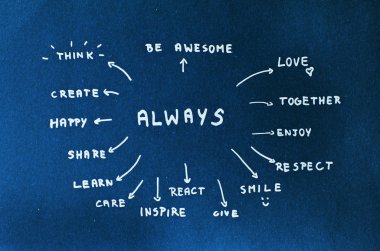 BE AWESOME
THINK
LOVE
CREATE
TOGETHER
HAPPY
ALWAYS
ENJOY
SHARE
RESPECT
LEARN
REACT
SMILE
CARE
INSPIRE
GIVE